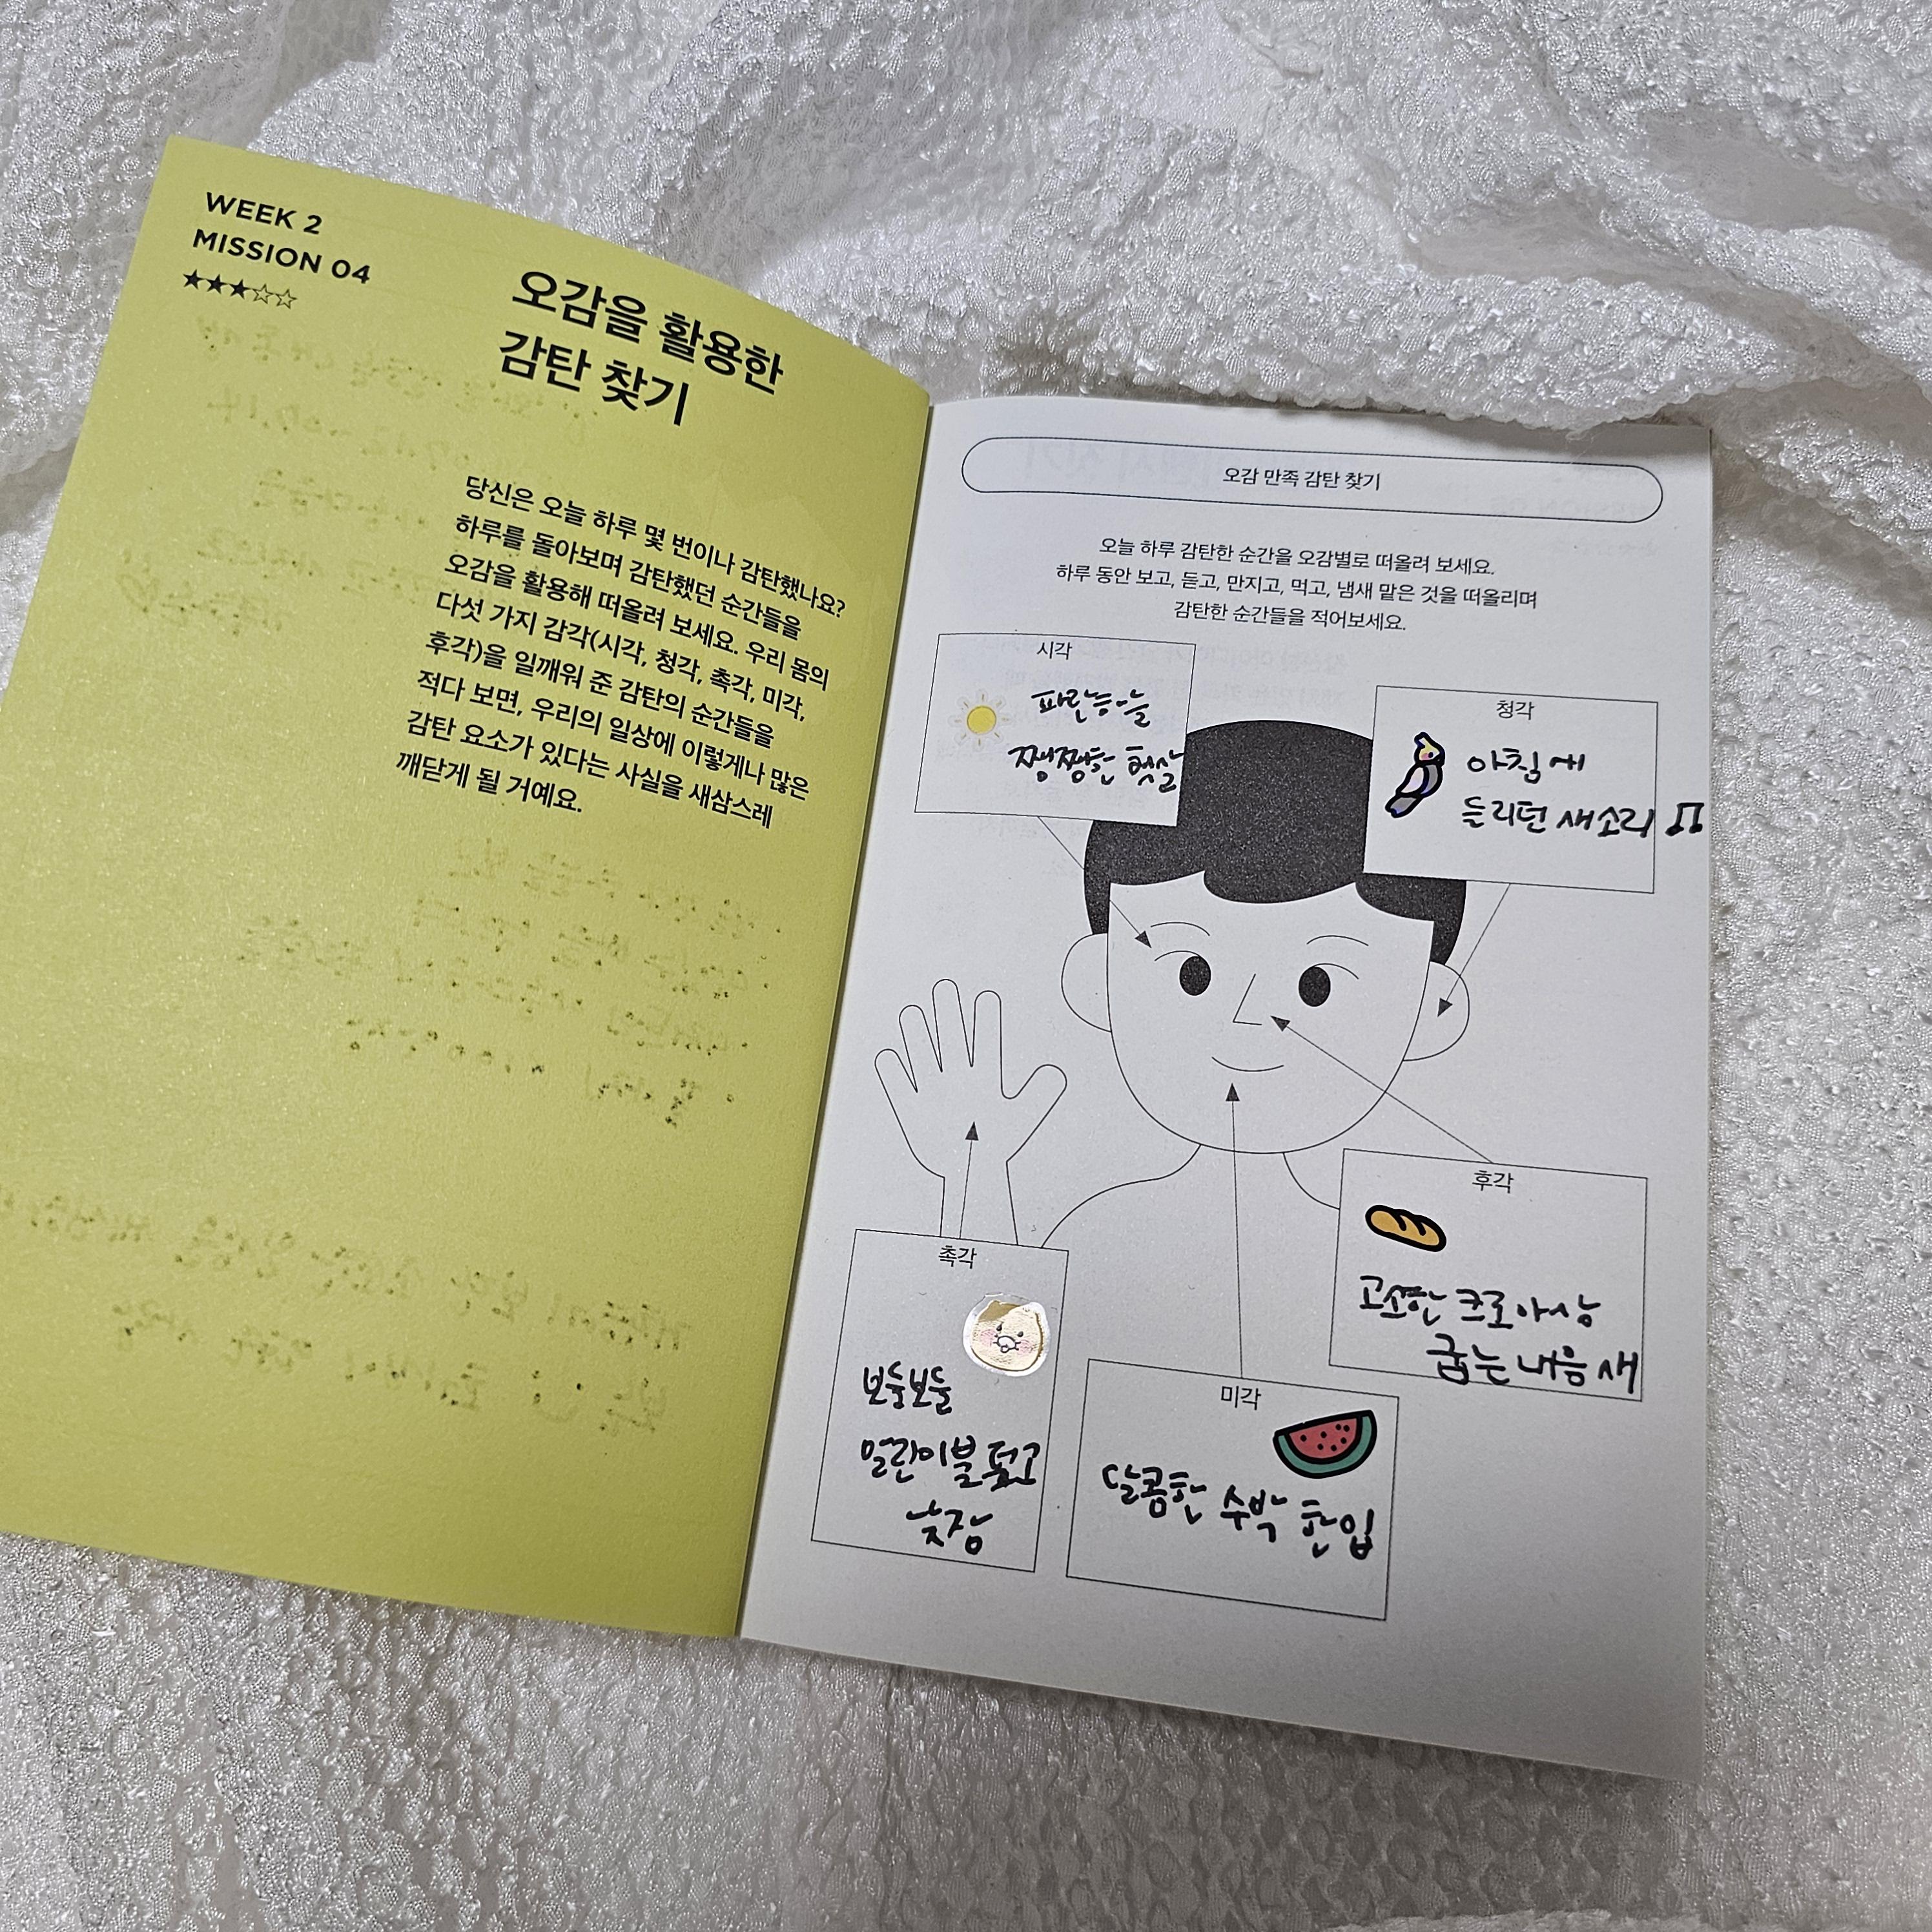 WEEK 2
MISSION 04
★★★☆☆
오감을 활용한
감탄 찾기
당신은 오늘 하루 몇 번이나 감탄했나요?
하루를 돌아보며 감탄했던 순간들을
오감을 활용해 떠올려 보세요. 우리 몸의
다섯 가지 감각(시각, 청각, 촉각, 미각,
후각)을 일깨워 준 감탄의 순간들을
적다 보면, 우리의 일상에 이렇게나 많은
감탄 요소가 있다는 사실을 새삼스레
깨닫게 될 거예요.
오감 만족 감탄 찾기
오늘 하루 감탄한 순간을 오감별로 떠올려 보세요.
하루 동안 보고, 듣고, 만지고, 먹고, 냄새 맡은 것을 떠올리며
감탄한 순간들을 적어보세요.
시각
파란하늘
쨍쨍한 햇살
청각
아침에
들리던 새소리 ♫
후각
고소한 크로아상
굽는 내음새
촉각
보들보들
말린이불 덮고
낮잠
미각
달콤한 수박 한입